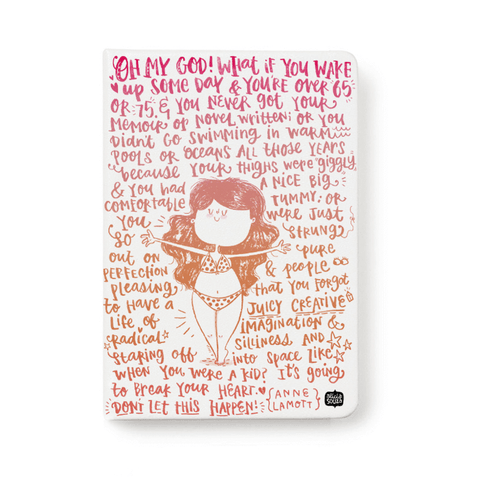 OH MY GOD! WHAT IF YOU WAKE
up SOME DAY & YOU'RE OVER 65
OR 75, & YOU NEVER GOT YOUR
MEMOIR OR NOVEL WRITTEN; OR YOU
DIDN'T GO SWIMMING IN WARM
POOLS OR OCEANS ALL THOSE YEARS
because YOUR THIGHS were giggly
& YOU HAD A NICE BIG
COMFORTABLE TUMMY; OR
YOU WERE JUST
SO STRUNG
OUT ON PURE
PERFECTION & PEOPLE
PLEASING THAT YOU FORGOT
TO HAVE A JUICY CREATIVE
LIFE OF IMAGINATION &
RADICAL SILLINESS AND
STARING OFF INTO SPACE LIKE
WHEN YOU WERE A KID? IT'S GOING
to BREAK YOUR HEART.
DON'T LET THIS HAPPEN! {ANNE
LAMOTT}
alicia
souza